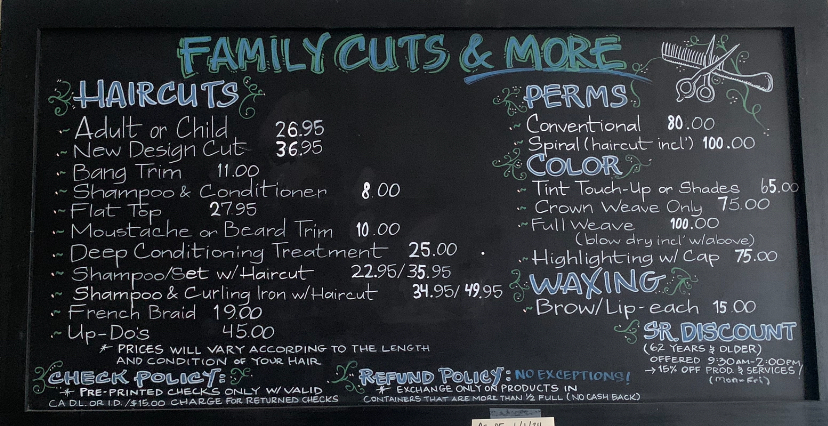 FAMILY CUTS & MORE
HAIRCUTS
~ Adult or Child 26.95
~ New Design Cut 36.95
~ Bang Trim 11.00
~ Shampoo & Conditioner 8.00
~ Flat Top 27.95
~ Moustache or Beard Trim 10.00
~ Deep Conditioning Treatment 25.00
~ Shampoo/Set w/Haircut 22.95/35.95
~ Shampoo & Curling Iron w/Haircut 34.95/49.95
~ French Braid 19.00
~ Up-Do's 45.00
* PRICES WILL VARY ACCORDING TO THE LENGTH
AND CONDITION OF YOUR HAIR
PERMS
~ Conventional 80.00
~ Spiral (haircut incl') 100.00
COLOR
~ Tint Touch-Up or Shades 65.00
~ Crown Weave Only 75.00
~ Full Weave 100.00
(blow dry incl' w/above)
~ Highlighting w/ Cap 75.00
WAXING
~ Brow/Lip-each 15.00
SR. DISCOUNT
(62 YEARS & OLDER)
OFFERED 9:30AM-2:00PM
→ 15% OFF PROD. & SERVICES/
(Mon-Fri)
CHECK POLICY:
* PRE-PRINTED CHECKS ONLY W/VALID
CA DL. OR I.D./$15.00 CHARGE FOR RETURNED CHECKS
REFUND POLICY: NO EXCEPTIONS!
* EXCHANGE ONLY ON PRODUCTS IN
CONTAINERS THAT ARE MORE THAN 1/2 FULL (NO CASH BACK)